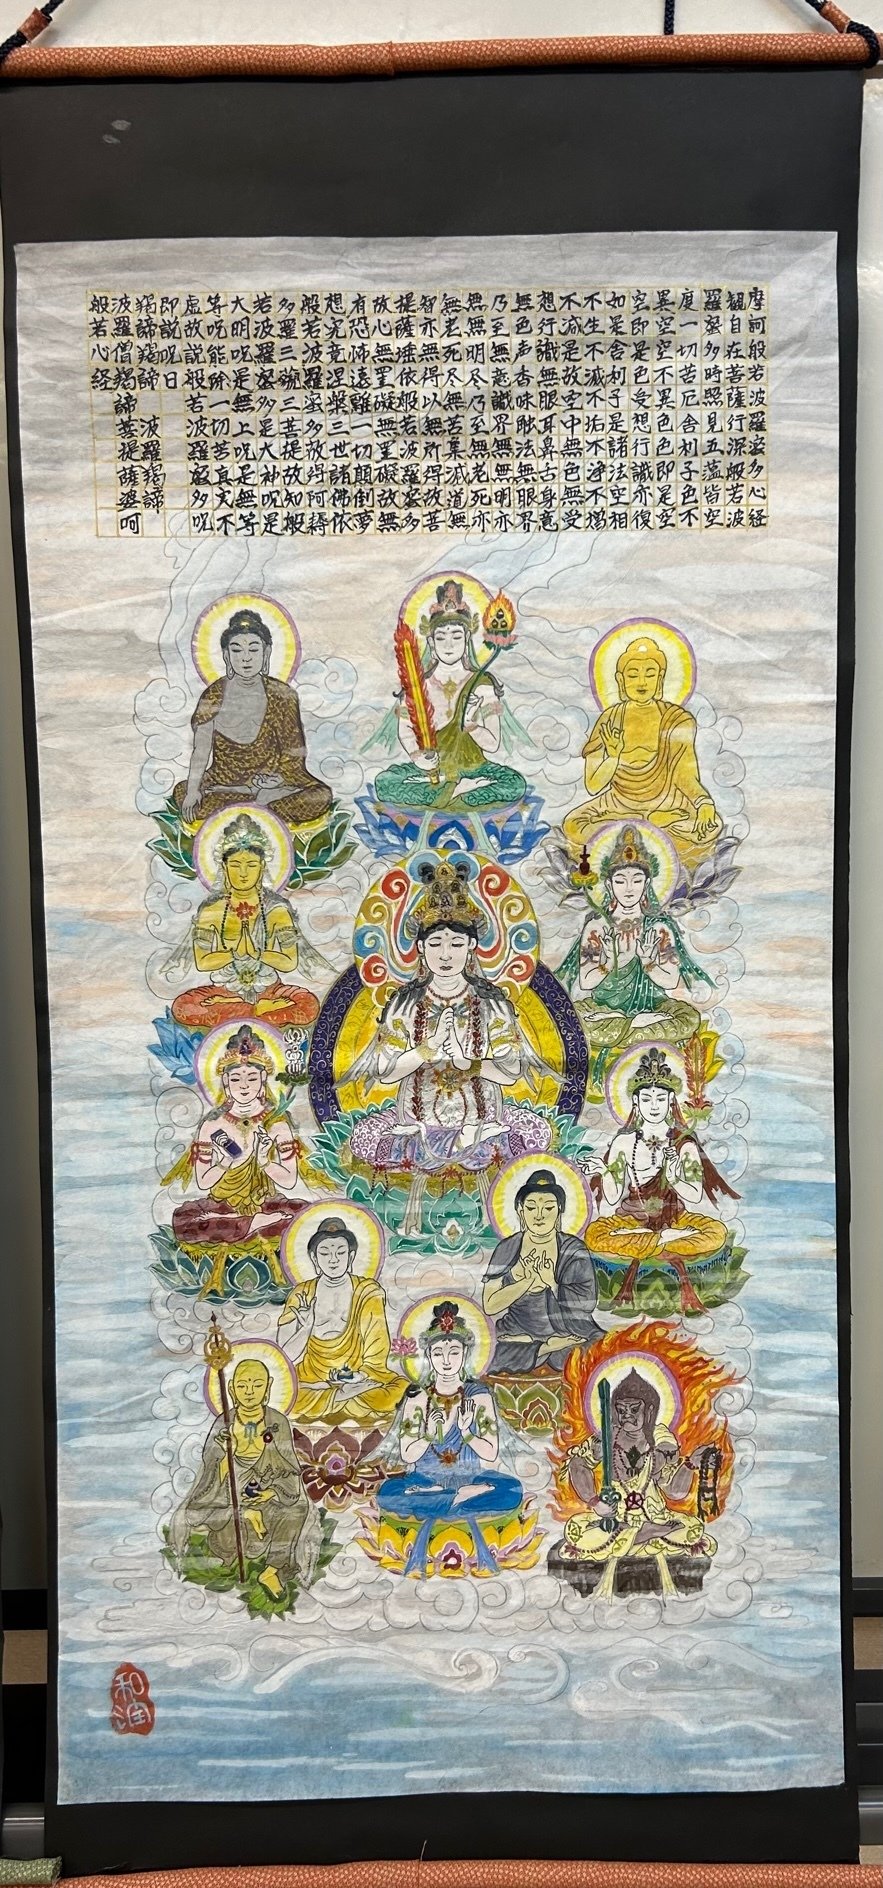 摩訶般若波羅蜜多心経
観自在菩薩行深般若波
羅蜜多時照見五蘊皆空
度一切苦厄舎利子色不
異空空不異色色即是空
空即是色受想行識亦復
如是舎利子是諸法空相
不生不滅不垢不浄不増
不減是故空中無色無受
想行識無眼耳鼻舌身意
無色声香味触法無眼界
乃至無意識界無無明亦
無無明尽乃至無老死亦
無老死尽無苦集滅道無
智亦無得以無所得故菩
提薩埵依般若波羅蜜多
故心無罣礙無罣礙故無
有恐怖遠離一切顛倒夢
想究竟涅槃三世諸佛依
般若波羅蜜多故得阿耨
多羅三藐三菩提故知般
若波羅蜜多是大神呪是
大明呪是無上呪是無等
等呪能除一切苦真実不
虚故説般若波羅蜜多呪
即説呪曰
羯諦羯諦 波羅羯諦
波羅僧羯諦菩提薩婆呵
般若心経
和